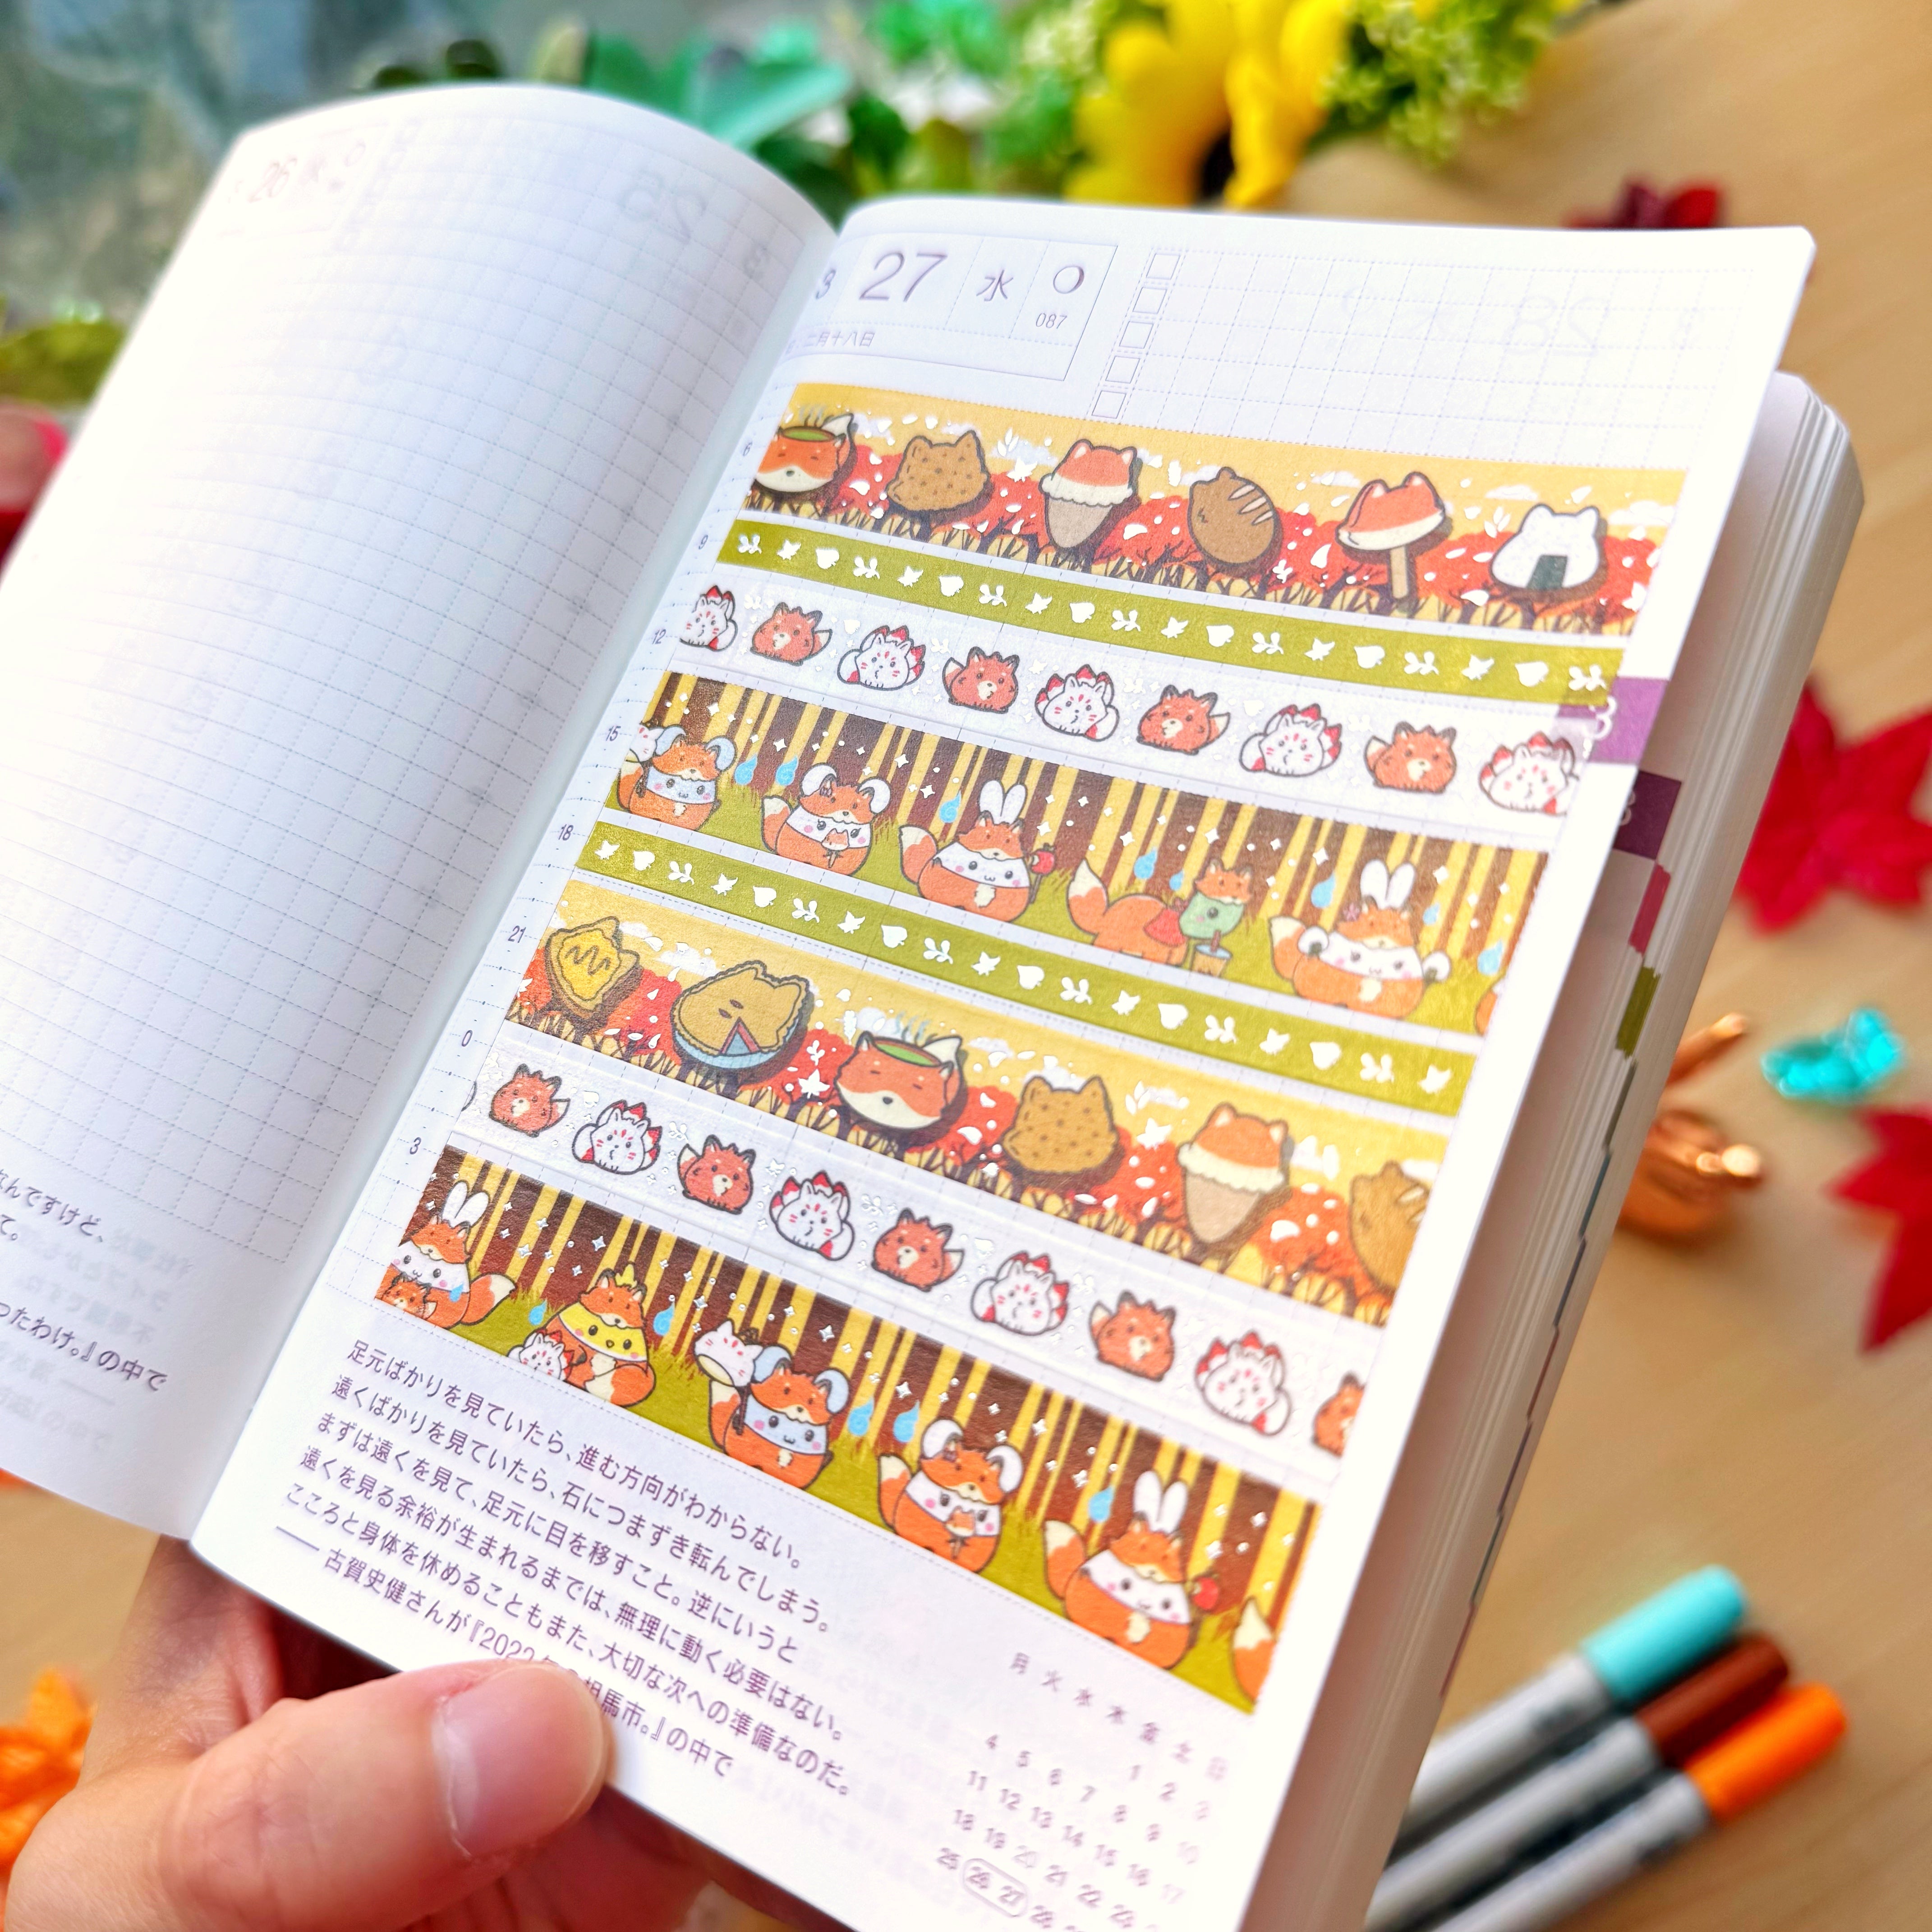 26
なんですけど、
て。
ったわけ。』の中で
3 27 水
087
二月十八日
6
9
12
15
18
21
0
3
3
足元ばかりを見ていたら、進む方向がわからない。
遠くばかりを見ていたら、石につまずき転んでしまう。
まずは遠くを見て、足元に目を移すこと。逆にいうと
遠くを見る余裕が生まれるまでは、無理に動く必要はない。
こころと身体を休めることもまた、大切な次への準備なのだ。
── 古賀史健さんが『2022年 相馬市。』の中で
月 火 水 木 金 土 日
1 2 3
4 5 6 7 8 9 10
11 12 13 14 15 16 17
18 19 20 21 22 23
25 26 27 28